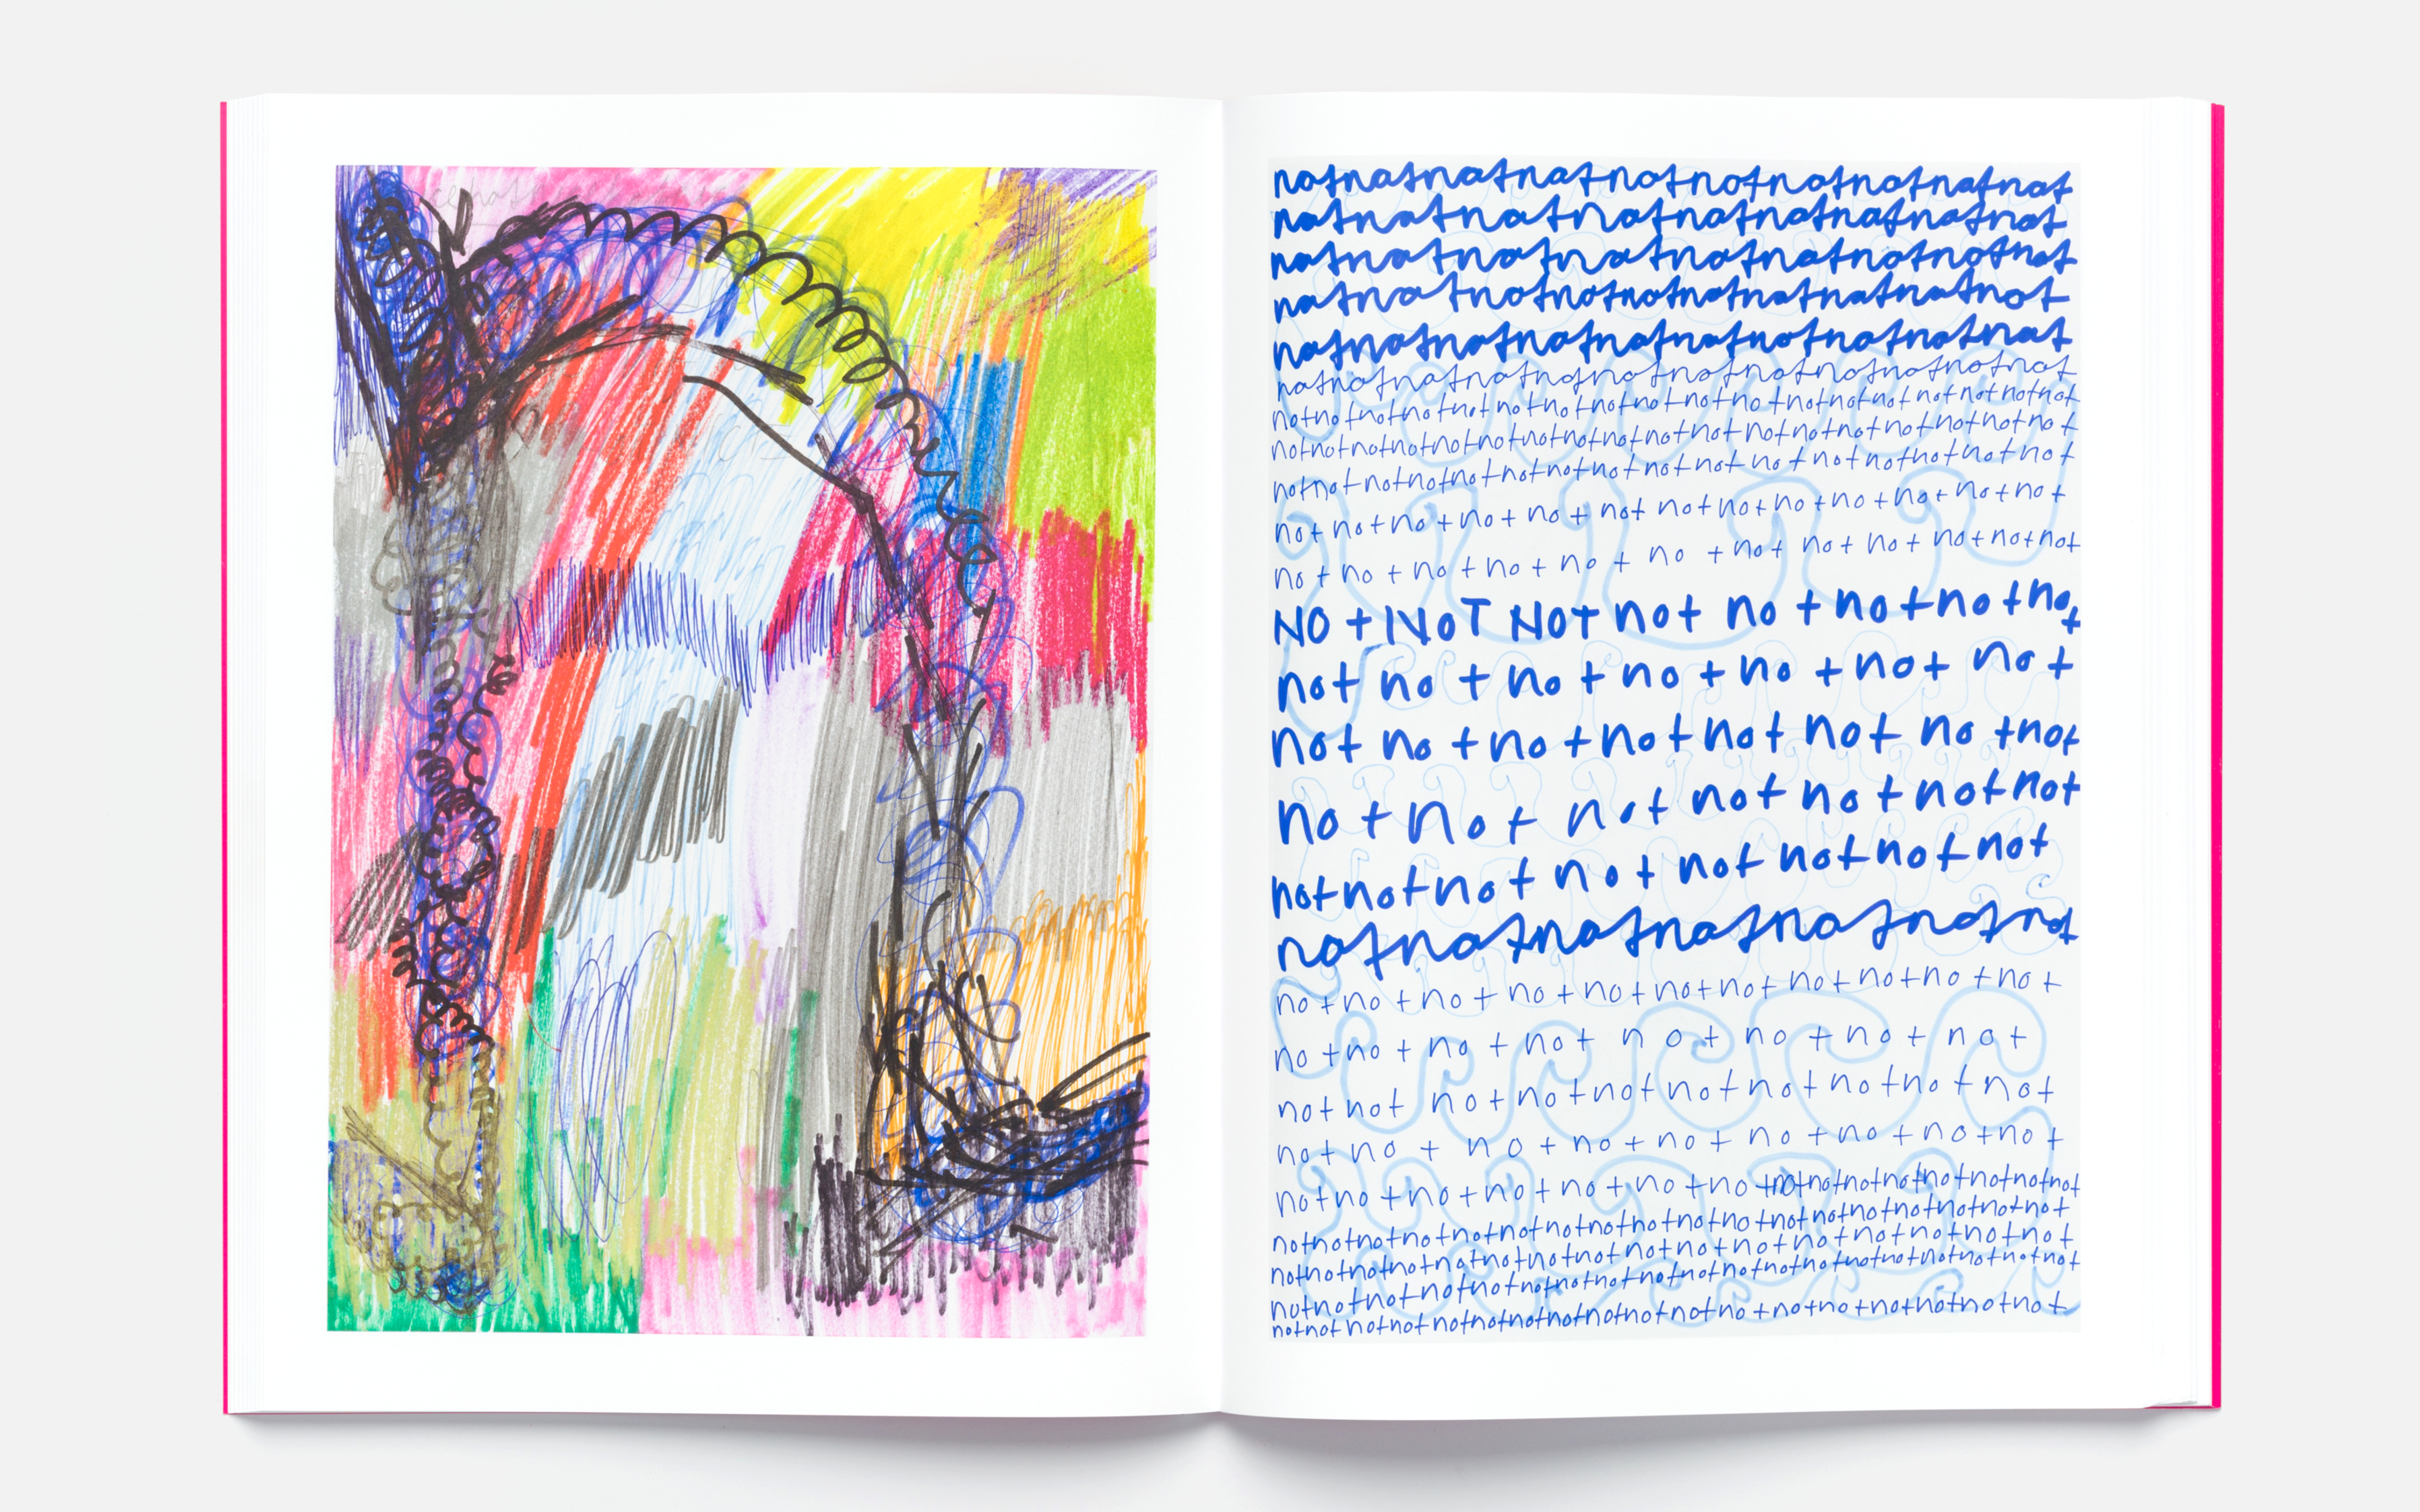 notnotnotnotnotnotnotnotnotnot
notnotnotnotnotnotnotnotnot
notnotnotnotnotnotnotnotnot
notnotnotnotnotnotnotnotnotnot
notnotnotnotnotnotnotnotnotnot
notnotnotnotnotnotnotnotnotnot
notnotnotnotnotnotnotnotnotnotnotnotnotnotnotnotnotnot
notnotnotnotnotnotnotnotnotnotnotnotnotnotnotnotnot
notnotnotnotnotnotnotnotnotnotnotnotnotnotnot
not not not not not not not not not not not not
not not not not not not not not not not not not
NOT NOT NOT not not not not not
not not not not not not not
not not not not not not not not
not not not not not not not
not not not not not not not not
notnotnotnotnotnotnot
not not not not not not not not not not not
not not not not not not not not
not not not not not not not not not not
not not not not not not not not not
not not not not not not not notnotnotnotnotnot
notnotnotnotnotnotnotnotnotnotnotnotnotnotnot
notnotnotnotnotnotnotnotnotnotnotnotnotnot
notnotnotnotnotnotnotnotnotnotnotnotnotnotnotnot
notnotnotnotnotnotnotnotnotnotnotnotnotnotnotnotnot